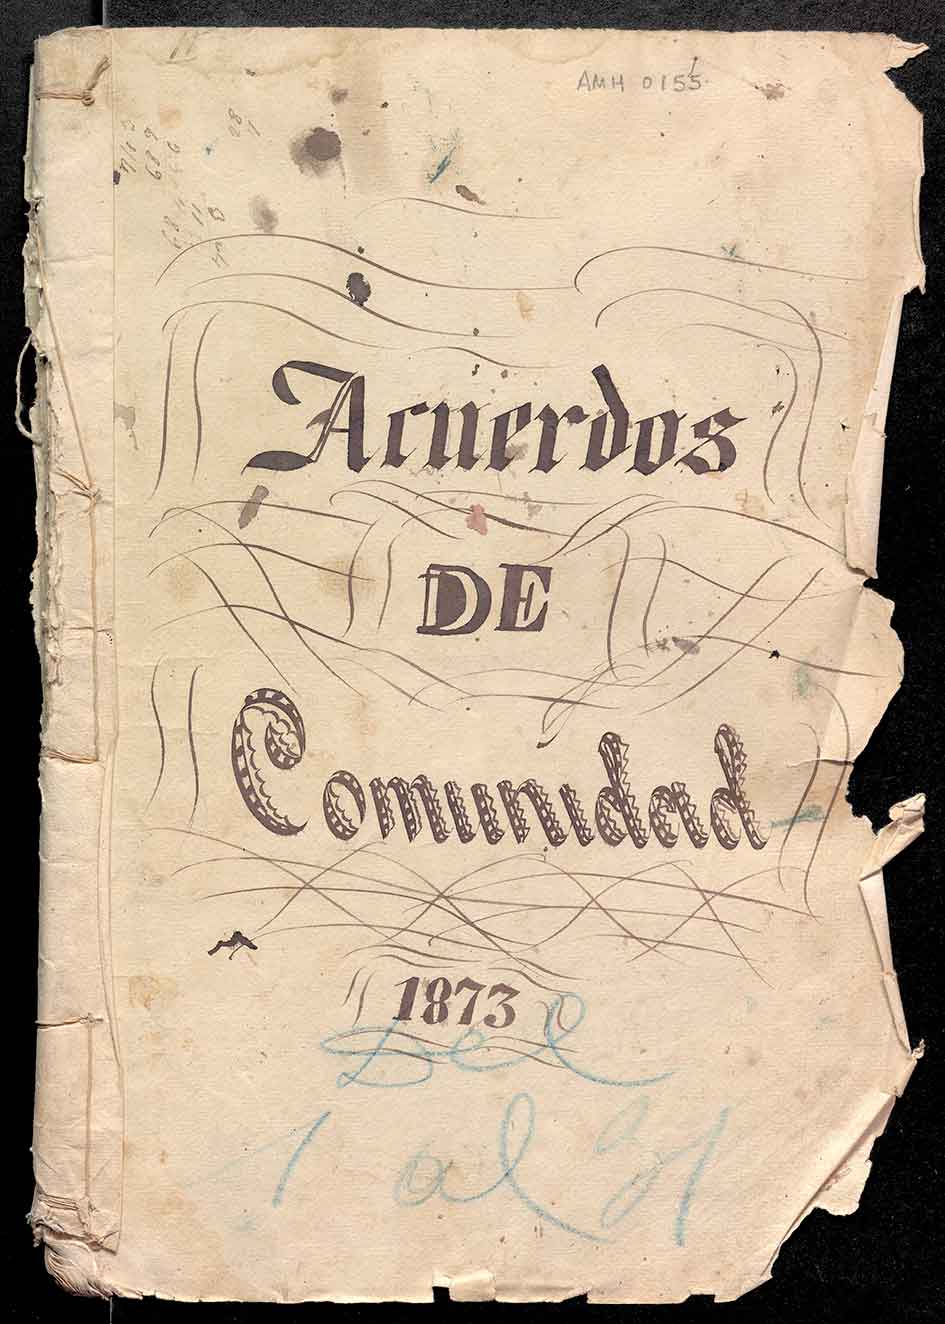 AMH 0155
Acuerdos
DE
Comunidad
1873
Del
1 al 21